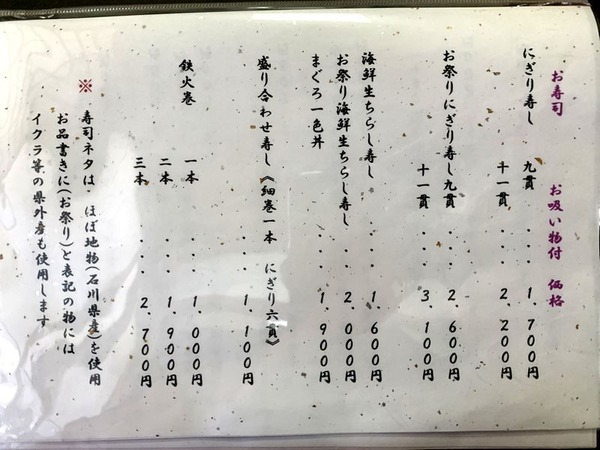 お寿司 お吸い物付 価格
にぎり寿し 九貫 ・・・ 1,700円
十一貫 ・・・ 2,200円
お祭りにぎり寿し九貫 ・・・ 2,600円
十一貫 ・・・ 3,100円
海鮮生ちらし寿し ・・・ 1,600円
お祭り海鮮生ちらし寿し ・・ 2,000円
まぐろ一色丼 ・・・ 1,900円
盛り合わせ寿し《細巻一本 にぎり六貫》
・・・ 1,100円
鉄火巻
一本 ・・・ 1,000円
二本 ・・・ 1,900円
三本 ・・・ 2,700円
※ 寿司ネタは、ほぼ地物(石川県産)を使用
お品書きに(お祭り)と表記の物には
イクラ等の県外産も使用します